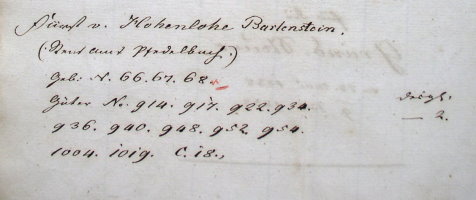 Fürst v. Hohenlohe Bartenstein.
(Rent Amt Pfedelbach.)
Geb: N. 66. 67. 68.
Güter No. 914. 917. 922. 934.
936. 940. 948. 952. 954.
1004. 1019. C. 18.,
desgl.
— 2.